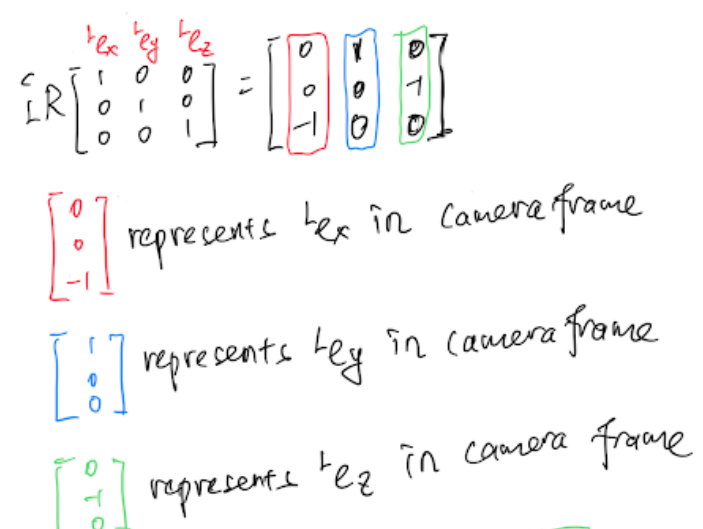 ᴸex ᴸey ᴸez
ᶜ_L R [1 0 0; 0 1 0; 0 0 1] = [0 1 0; 0 0 -1; -1 0 0]
[0; 0; -1] represents ᴸex in camera frame
[1; 0; 0] represents ᴸey in camera frame
[0; -1; 0] represents ᴸez in camera frame